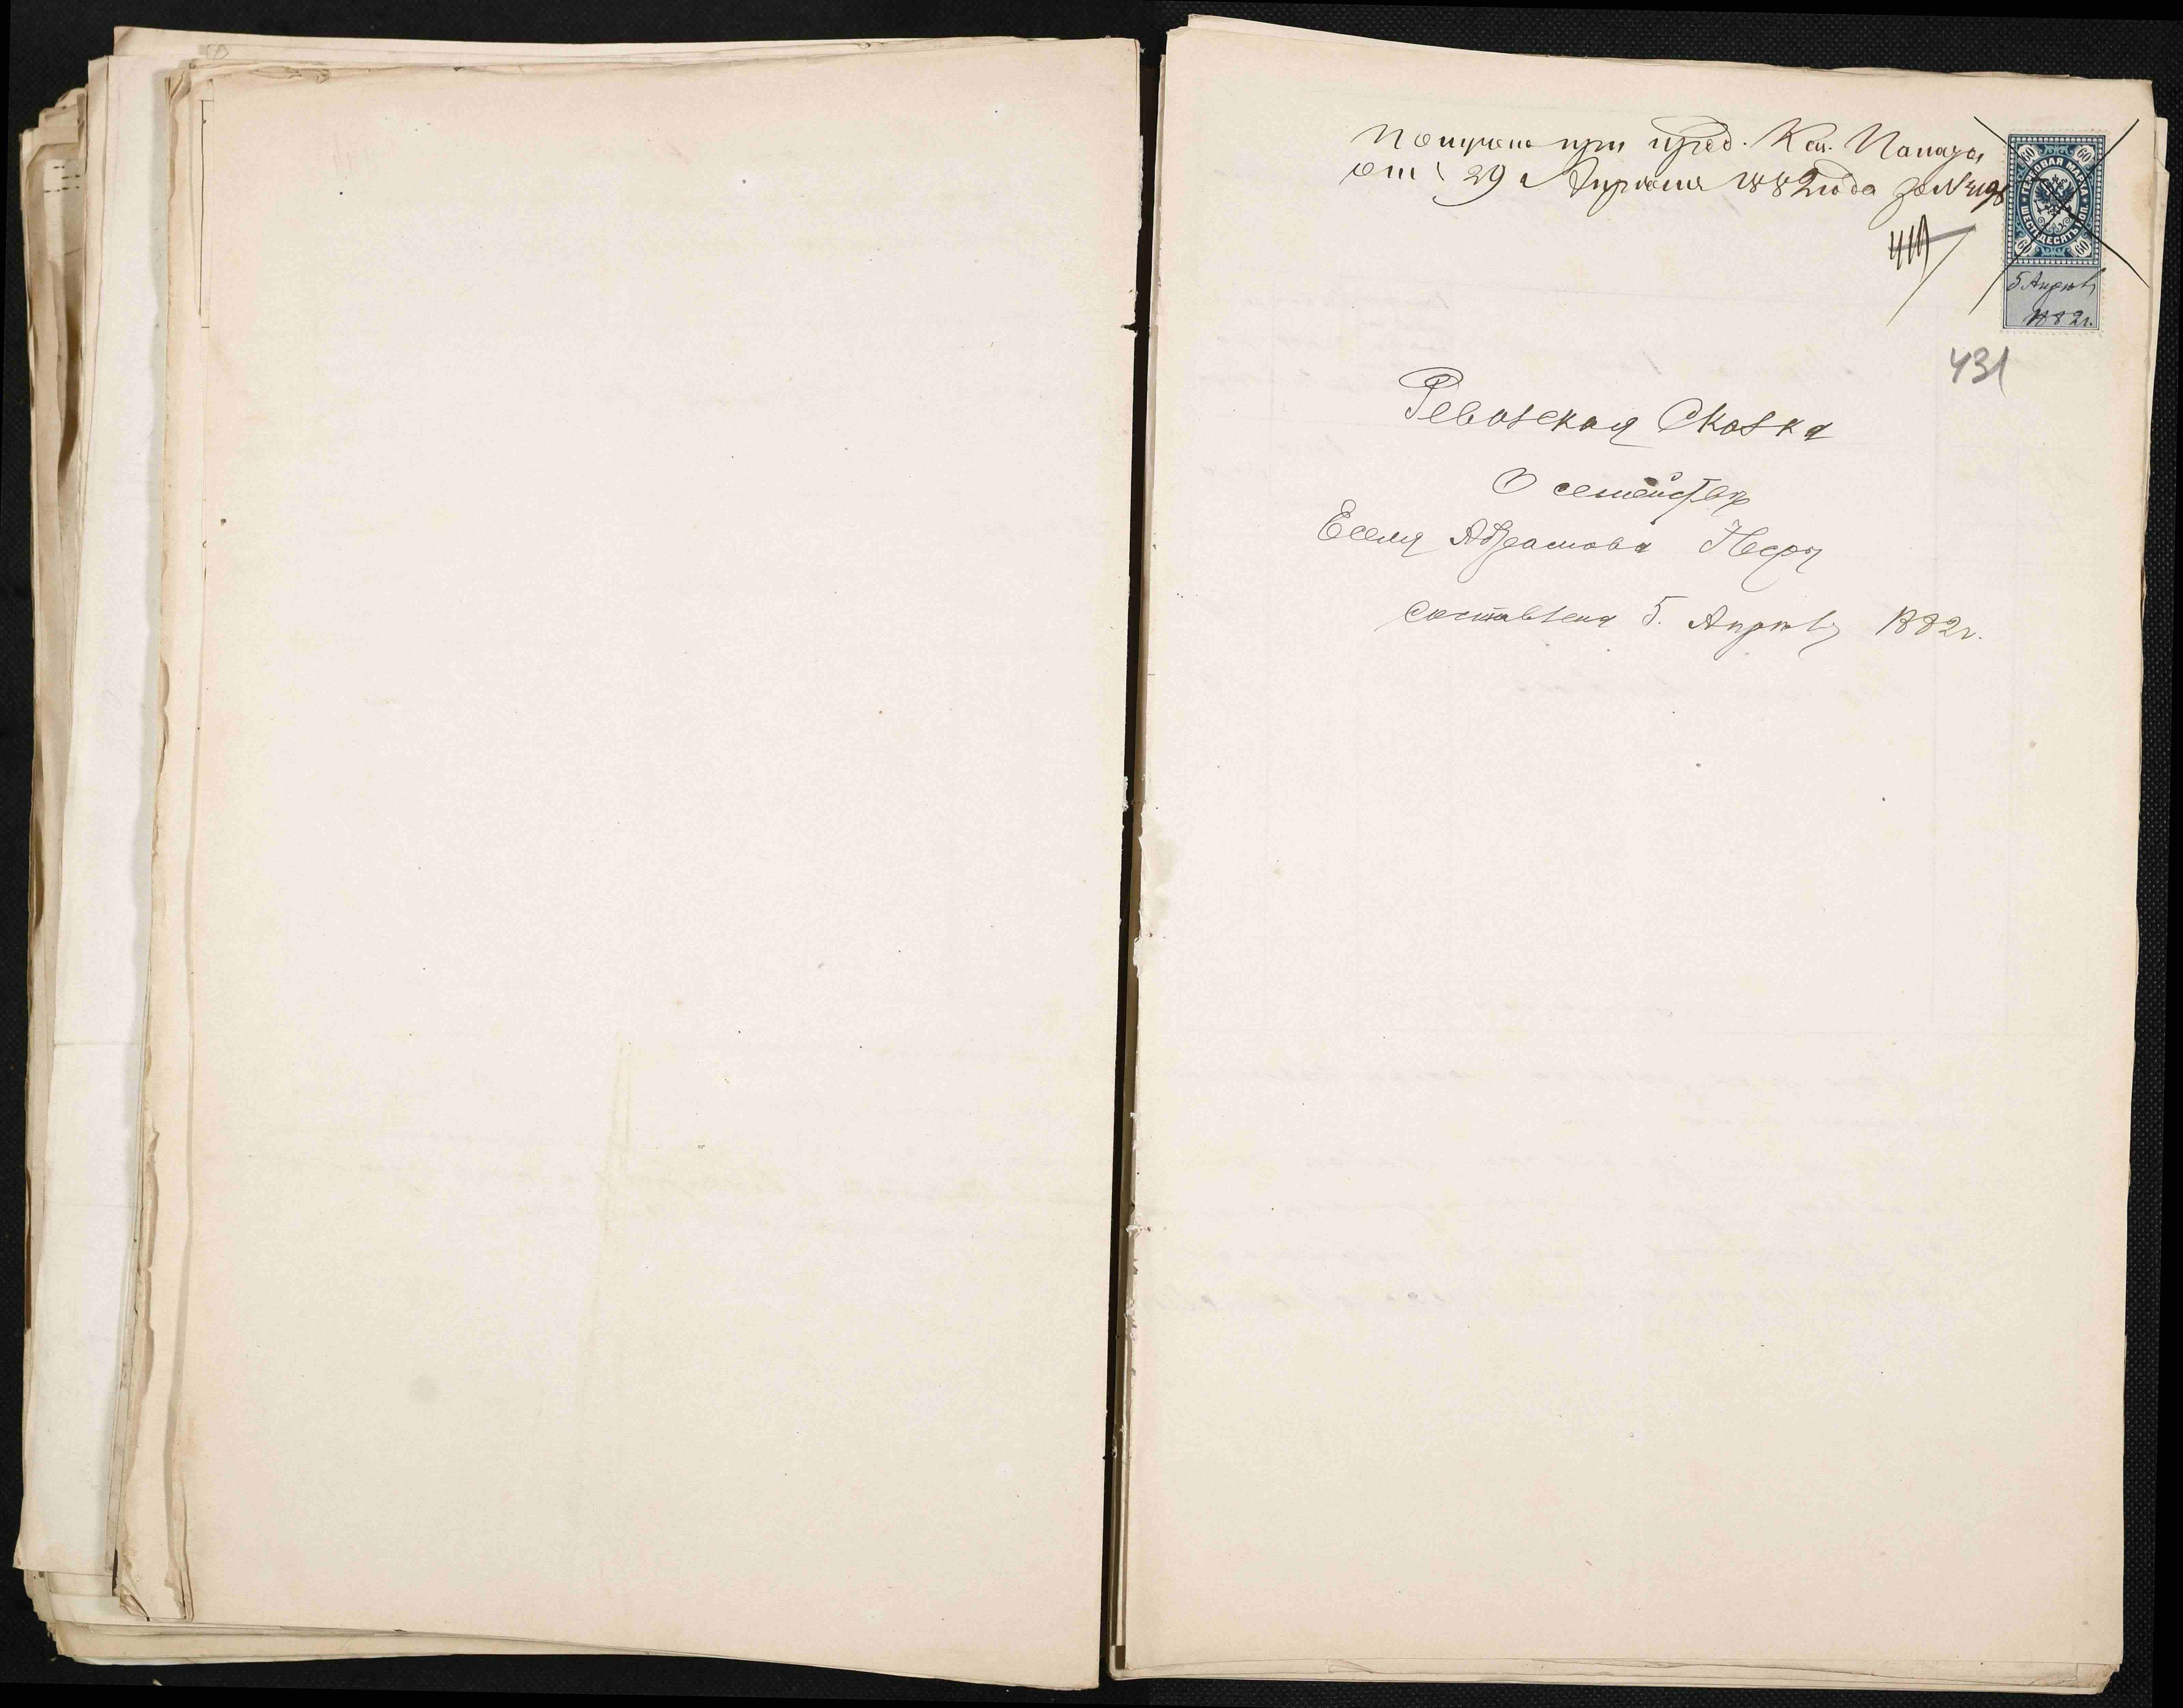 Получена при пред. Каз. Палаты
отъ 29 Апрѣля 1882 года за №
ГЕРБОВАЯ МАРКА
ШЕСТЬДЕСЯТЪ КОП.
60 60
60 60
5 Апрѣля
1882г.
431
Ревизская Сказка
О семействѣ
Еселя Абрамова
Составлена 5. Апрѣля 1882г.